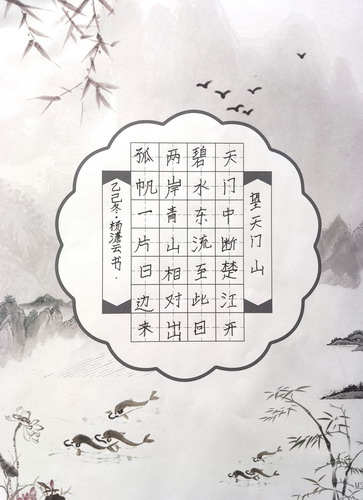 望天门山
天门中断楚江开
碧水东流至此回
两岸青山相对出
孤帆一片日边来
乙巳冬·杨潇云书·